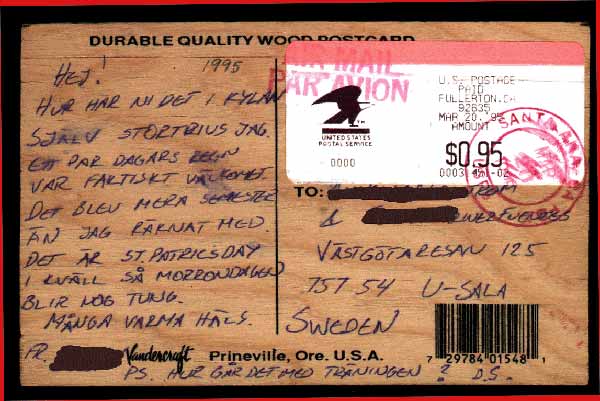 DURABLE QUALITY WOOD POSTCARD
HEJ! 1995
HUR HAR NI DET I KYLAN
SJÄLV STORTRIVS JAG.
ETT PAR DAGARS REGN
VAR FAKTISKT VÄLKOMET.
DET BLEV MERA SEMESTER
ÄN JAG RÄKNAT MED.
DET ÄR ST. PATRICSDAY
I KVÄLL SÅ MORRONDAGEN
BLIR NOG TUNG.
MÅNGA VARMA HÄLS.
FR.
AIR MAIL
PAR AVION
UNITED STATES
POSTAL SERVICE
0000
U.S. POSTAGE
PAID
FULLERTON, CA
92635
MAR 20, 95
AMOUNT
$0.95
SANTA ANA
TO:
&
VÄSTGÖTARESAN 125
757 54 U-SALA
SWEDEN
Vandercraft Prineville, Ore. U.S.A.
7 29784 01548 1
PS. HUR GÅR DET MED TRÄNINGEN? D.S.